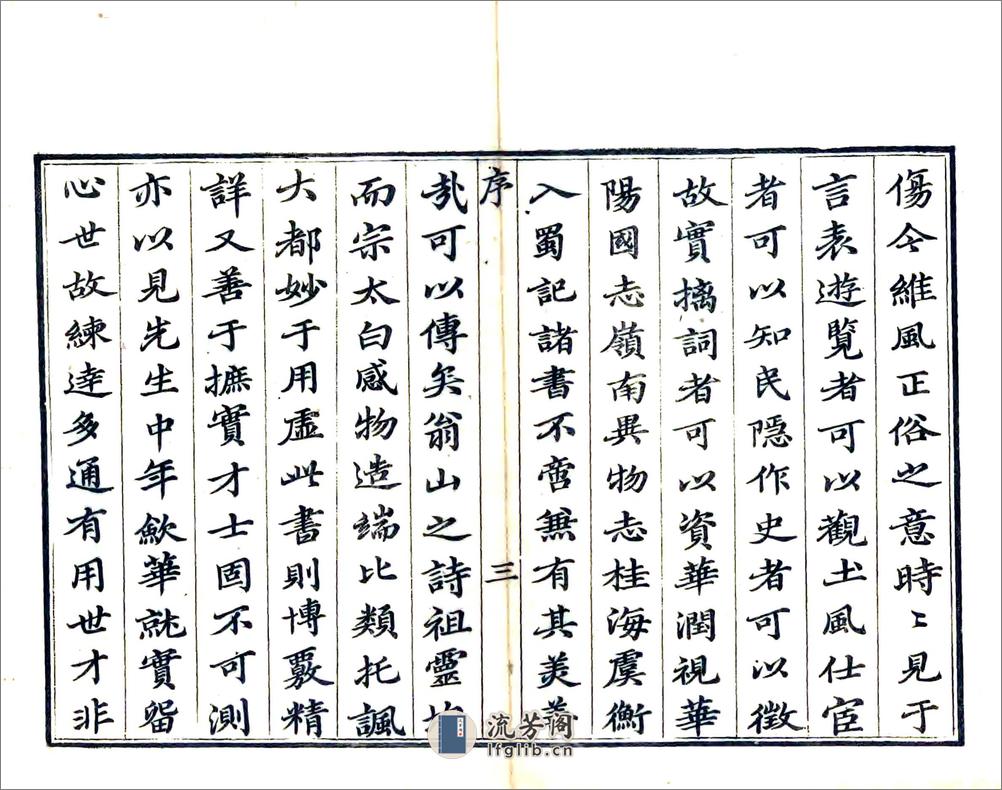 傷今維風正俗之意時〻見于
言表遊覽者可以觀土風仕宦
者可以知民隱作史者可以徵
故實摛詞者可以資華潤視華
陽國志嶺南異物志桂海虞衡
入蜀記諸書不啻兼有其美善
序 三
哉可以傳矣翁山之詩祖靈均
而宗太白感物造端比類托諷
大都妙于用虛此書則博覈精
詳又善于摭實才士固不可測
亦以見先生中年歛華就實留
心世故練達多通有用世才非
流芳阁
lfglib.cn